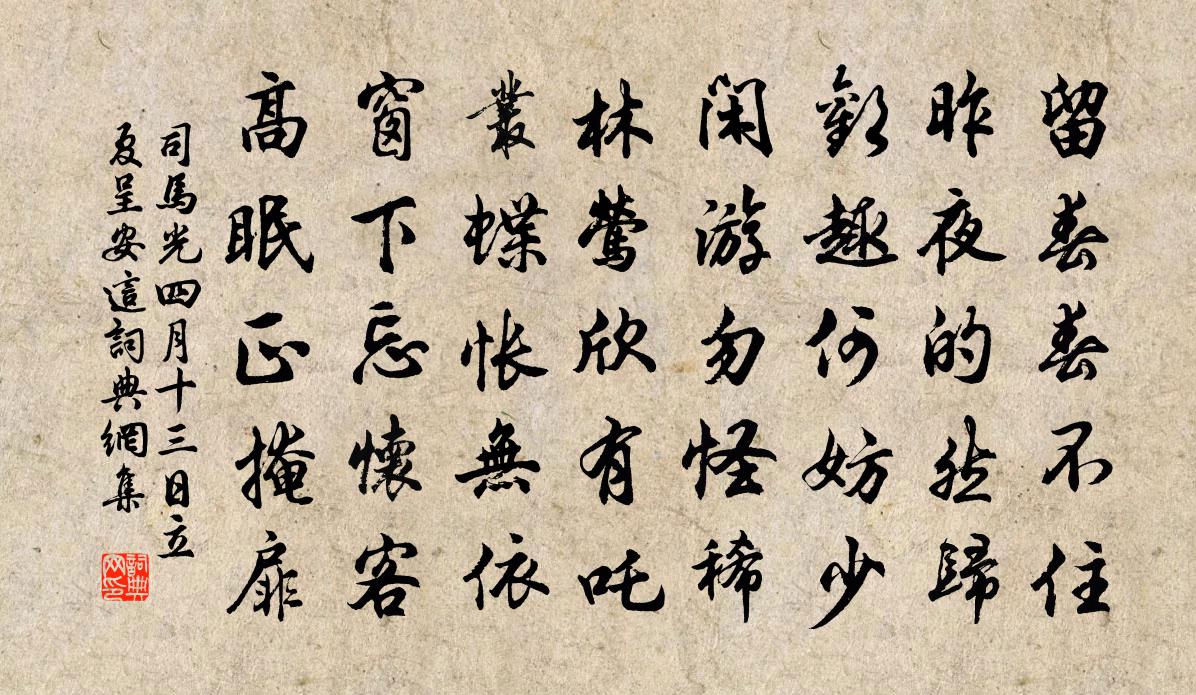 留春春不住
昨夜的然歸
歡趣何妨少
閑游勿怪稀
林鶯欣有吒
叢蝶悵無依
窗下忘懷客
高眠正掩扉
司馬光四月十三日立
夏呈安這詞典網集
詞典
网印